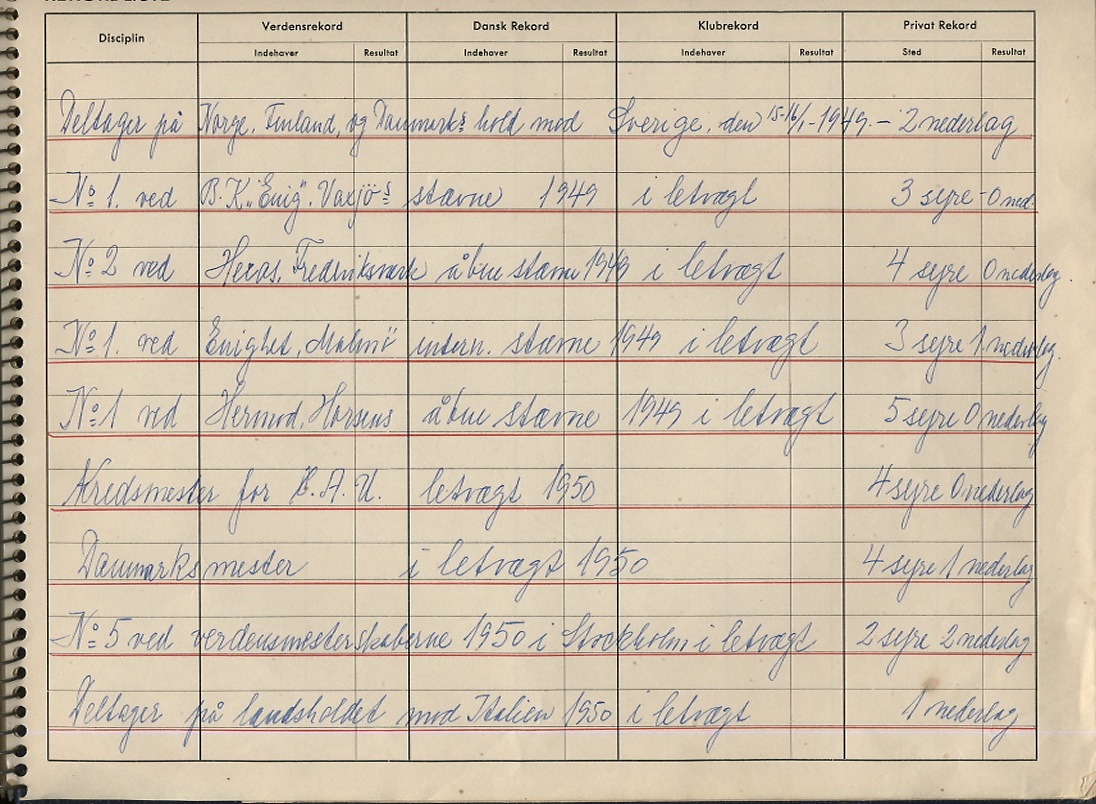 Disciplin Verdensrekord Dansk Rekord Klubrekord Privat Rekord
Indehaver Resultat Indehaver Resultat Indehaver Resultat Sted Resultat
Deltager på Norge, Finland, og Danmarks hold mod Sverige, den 15-16/1-1949. - 2 nederlag
No 1. ved B.K. "Enig". Vaxjö's stævne 1949 i letvægt 3 sejre - 0 ned.
No 2 ved Heros, Fredriksværk åbne stævne 1949 i letvægt 4 sejre 0 nederlag.
No 1. ved Enighet, Malmö intern. stævne 1949 i letvægt 3 sejre 1 nederlag.
No 1 ved Hermod, Horsens åbne stævne 1949 i letvægt 5 sejre 0 nederlag
Kredsmester for A.U. letvægt 1950 4 sejre 0 nederlag
Danmarksmester i letvægt 1950 4 sejre 1 nederlag
No 5 ved verdensmesterskaberne 1950 i Stockholm i letvægt 2 sejre 2 nederlag
Deltager på landsholdet mod Italien 1950 i letvægt 1 nederlag